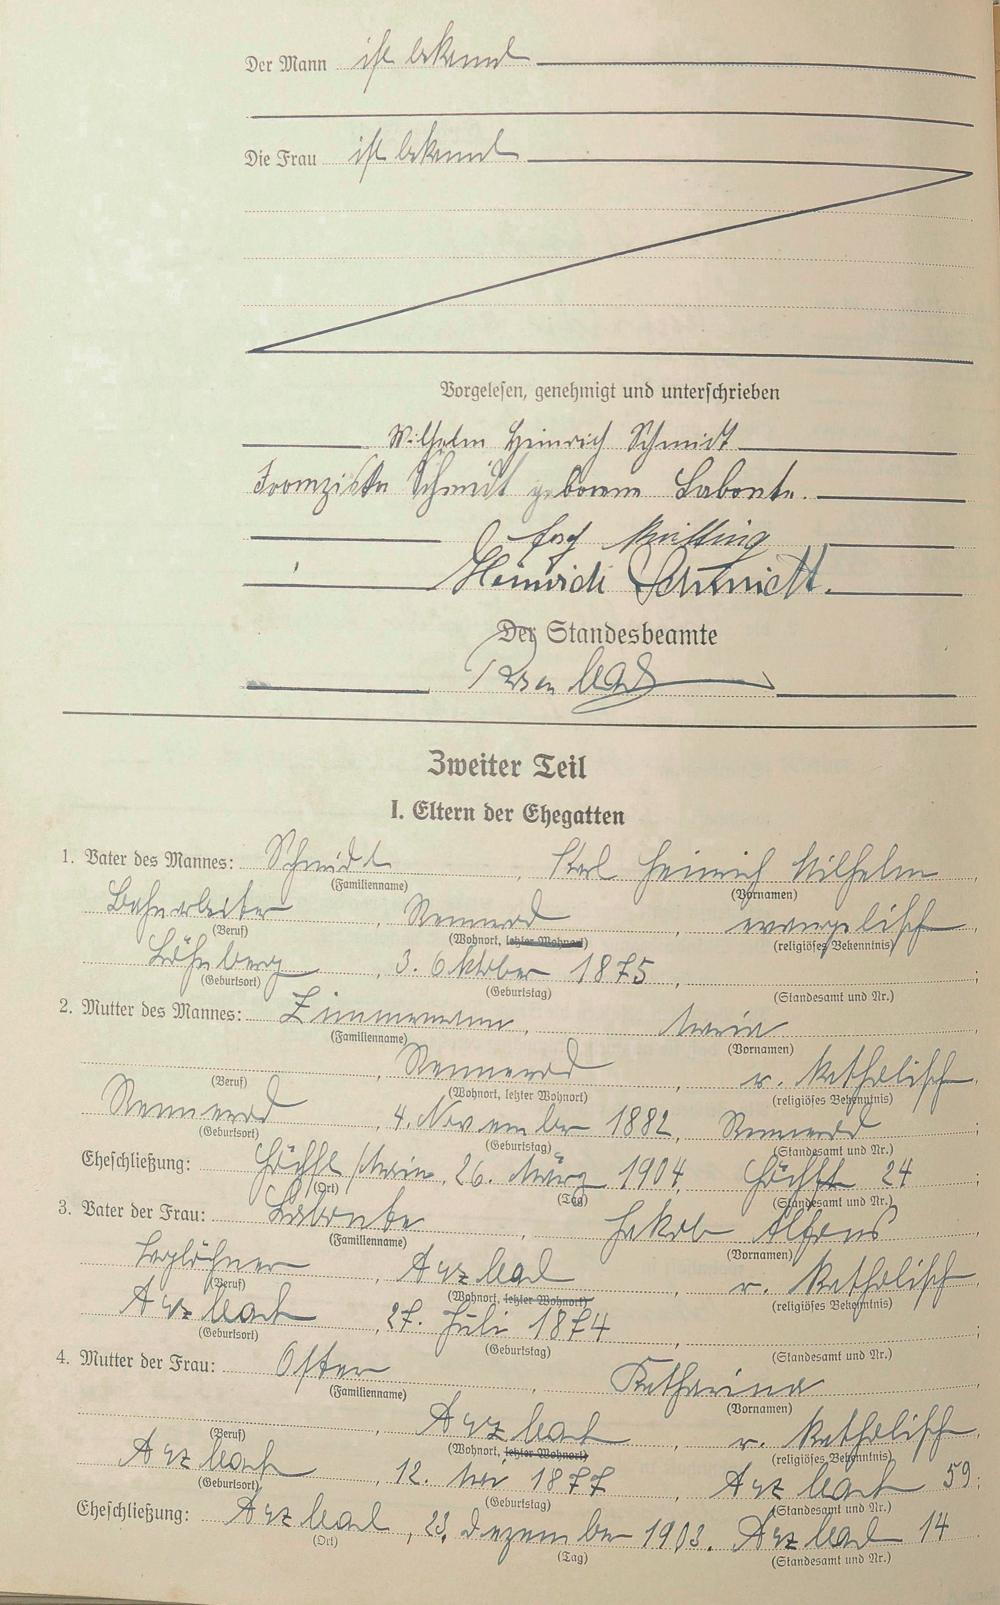 Der Mann ist bekannt
Die Frau ist bekannt
Vorgelesen, genehmigt und unterschrieben
Wilhelm Heinrich Schmidt
Franziska Schmidt geborene Labonte.
Heinrich Schmidt.
Der Standesbeamte
Zweiter Teil
I. Eltern der Ehegatten
1. Vater des Mannes: Schmidt, Karl Heinrich Wilhelm,
(Familienname) (Vornamen)
Bahnarbeiter, Rennerod, evangelisch
(Beruf) (Wohnort, letzter Wohnort) (religiöses Bekenntnis)
Löhnberg, 3. Oktober 1875, ;
(Geburtsort) (Geburtstag) (Standesamt und Nr.)
2. Mutter des Mannes: Zimmermann, Maria,
(Familienname) (Vornamen)
, Rennerod, r. katholisch,
(Beruf) (Wohnort, letzter Wohnort) (religiöses Bekenntnis)
Rennerod, 4. November 1882, Rennerod ;
(Geburtsort) (Geburtstag) (Standesamt und Nr.)
Eheschließung: Höchst/Main, 26. März 1904, Höchst 24 ;
(Ort) (Tag) (Standesamt und Nr.)
3. Vater der Frau: Labonte, Jakob Alfons,
(Familienname) (Vornamen)
, Arzbach, r. katholisch,
(Beruf) (Wohnort, letzter Wohnort) (religiöses Bekenntnis)
Arzbach, 27. Juli 1874, ;
(Geburtsort) (Geburtstag) (Standesamt und Nr.)
4. Mutter der Frau: Oster, Katharina,
(Familienname) (Vornamen)
, Arzbach, r. katholisch,
(Beruf) (Wohnort, letzter Wohnort) (religiöses Bekenntnis)
Arzbach, 12. Mai 1877, Arzbach 59;
(Geburtsort) (Geburtstag) (Standesamt und Nr.)
Eheschließung: Arzbach, 23. Dezember 1903. Arzbach 14
(Ort) (Tag) (Standesamt und Nr.)